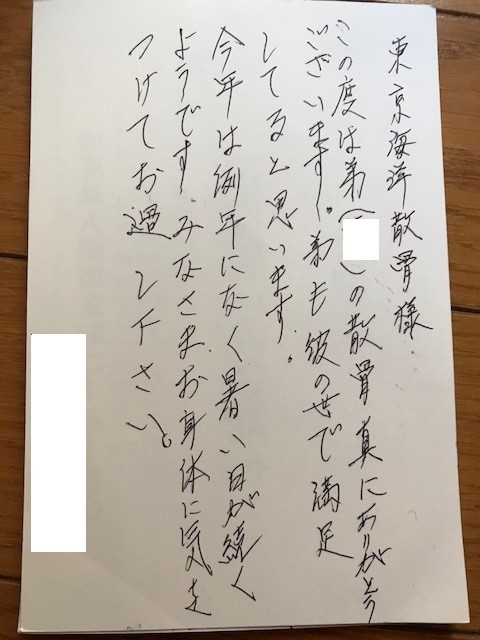 東京海洋散骨様
この度は弟(　)の散骨真にありがとう
ございます。弟も彼の世で満足
してると思います。
今年は例年になく暑い日が続く
ようです。みなさまお身体に気を
つけてお過し下さい。